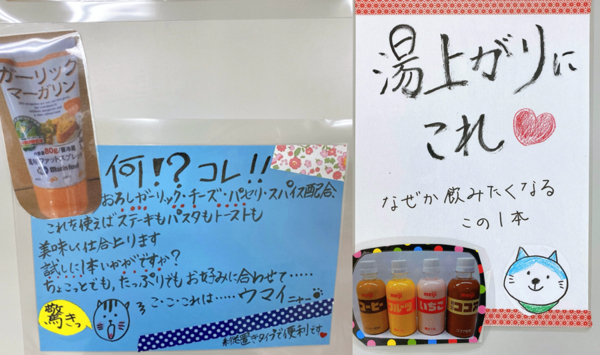 ガーリック
マーガリン
80g
何!?コレ!!
おろしガーリック・チーズ・パセリ・スパイス配合、
これを使えばステーキもパスタもトーストも
美味しく仕上ります
試しに1本いかがですか?
ちょこっとでも、たっぷりでもお好みに合わせて‥‥‥
こ・ここれは‥‥‥ウマイニャー
驚きっ
縦置きタイプで便利です
湯上がりに
これ
なぜか飲みたくなる
この1本
meiji
meiji
meiji
meiji
コーヒー
フルーツ
いちご
ココア